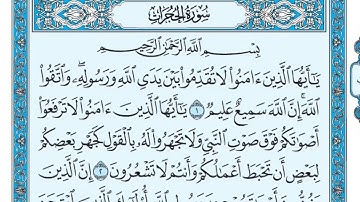 سُورَةُ الحُجُرَاتِ
بِسْمِ اللَّهِ الرَّحْمَٰنِ الرَّحِيمِ
يَٰٓأَيُّهَا الَّذِينَ ءَامَنُوا لَا تُقَدِّمُوا بَيْنَ يَدَيِ اللَّهِ وَرَسُولِهِۦ وَاتَّقُوا
اللَّهَ إِنَّ اللَّهَ سَمِيعٌ عَلِيمٌ ١ يَٰٓأَيُّهَا الَّذِينَ ءَامَنُوا لَا تَرْفَعُوٓا
أَصْوَٰتَكُمْ فَوْقَ صَوْتِ النَّبِيِّ وَلَا تَجْهَرُوا لَهُۥ بِالْقَوْلِ كَجَهْرِ بَعْضِكُمْ
لِبَعْضٍ أَن تَحْبَطَ أَعْمَٰلُكُمْ وَأَنتُمْ لَا تَشْعُرُونَ ٢ إِنَّ الَّذِينَ